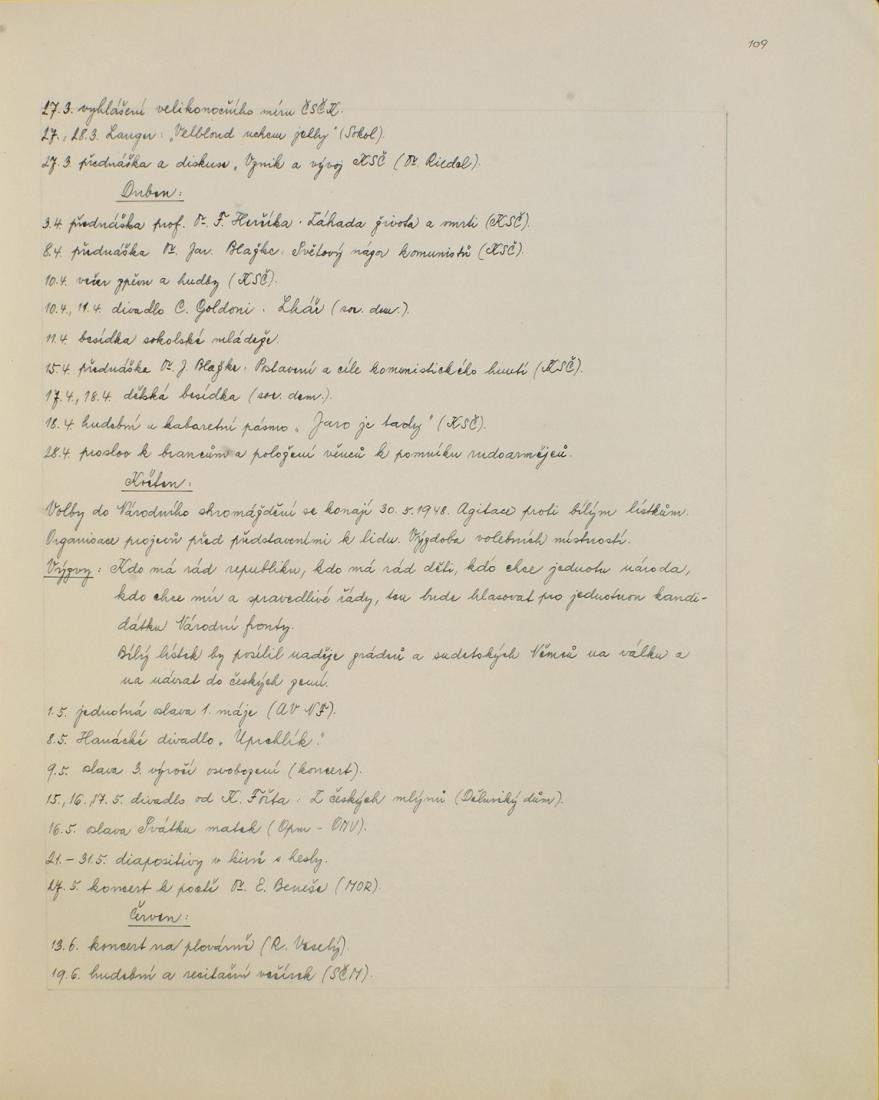 109
27.3. vyhlášení velikonočního míru ČSČK.
27., 28.3. Langer: „Velbloud uchem jehly" (Sokol).
27.3. přednáška a diskuse „Vznik a vývoj KSČ (Dr. Riedel).
Duben:
3.4. přednáška prof. Dr. F. Herčíka. Záhada života a smrti (KSČ).
8.4. přednáška Dr. Jar. Blažke: Světový názor komunistů (KSČ).
10.4. večer zpěvu a hudby (KSČ).
10.4., 11.4. divadlo C. Goldoni. Lhář (soc. dem.).
11.4. besídka sokolské mládeže.
15.4. přednáška Dr. J. Blažke. Postavení a cíle komunistického hnutí (KSČ).
17.4., 18.4. dětská besídka (soc. dem.).
18.4. hudební a kabaretní pásmo „Jaro je tady" (KSČ).
28.4. proslov k brancům a položení věnců k pomníku rudoarmějců.
Květen:
Volby do Národního shromáždění se konají 30.5.1948. Agitace proti bílým lístkům.
Organisace projevů před představeními k lidu. Výzdoba volebních místností.
Výzvy: Kdo má rád republiku, kdo má rád děti, kdo chce jednotu národa,
kdo chce mír a spravedlivé řády, ten bude hlasovat pro jednotnou kandi-
dátku Národní fronty.
Bílý lístek by posílil naděje zrádců a sudetských Němců na válku a
na návrat do českých zemí.
1.5. jednotná oslava 1. máje (AV NF).
8.5. Hanácké divadlo „Uprchlík."
9.5. oslava 3. výročí osvobození (koncert).
15., 16., 17.5. divadlo od K. Fořta: Z českých mlýnů (Dělnický dům).
16.5. oslava Svátku matek (Opm - ONV).
21. - 31.5. diapositivy v kině s hesly.
27.5. koncert k poctě Dr. E. Beneše (MOR).
Červen:
13.6. koncert na plovárně (R. Veselý).
19.6. hudební a recitační večírek (SČM).